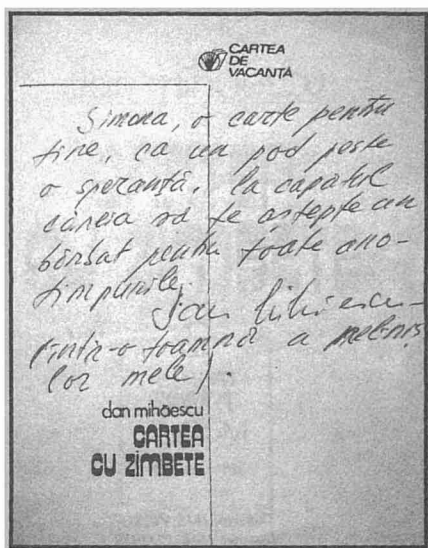 CARTEA
DE
VACANȚĂ
Simona, o carte pentru
tine, ca un pod peste
o speranță, la capătul
căreia să te aștepte un
bărbat pentru toate ano-
timpurile.
Dan Mihăescu
(într-o toamnă a
lor mele).
dan mihăescu
CARTEA
CU ZÎMBETE